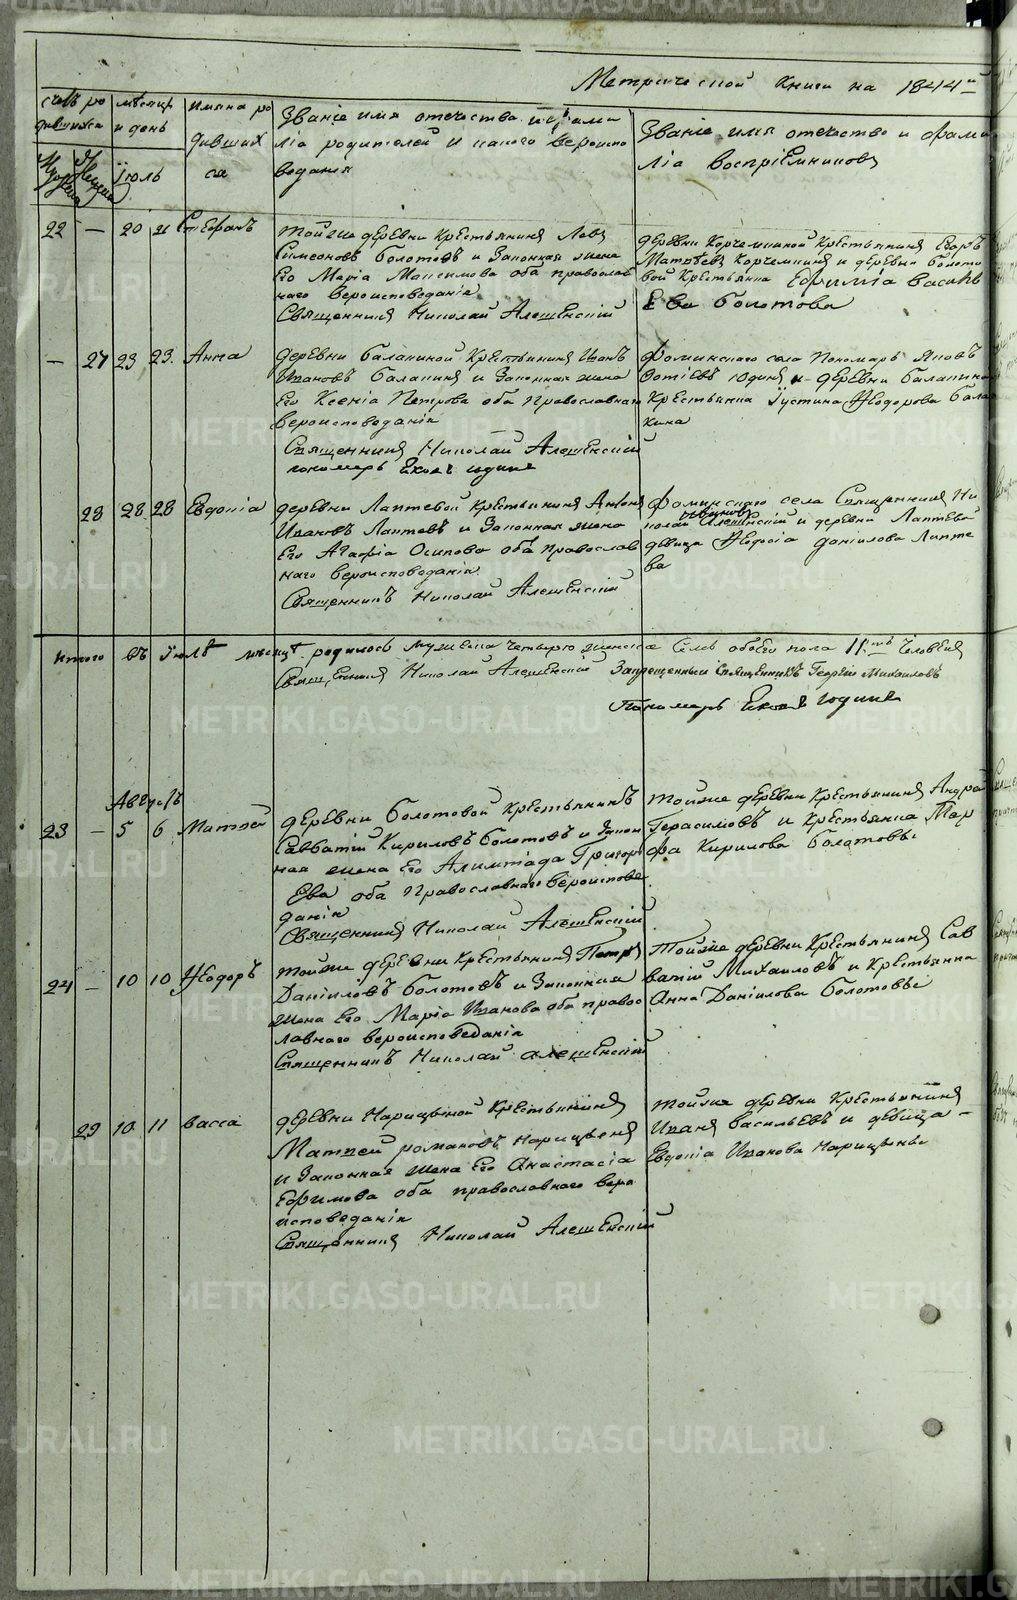 Метрической книги на 1844й
счетъ ро
дившихся
мѣсяцъ
и день
имяна ро
дивших
ся
Званіе имя отечество и фами
лія родителей и какого вѣроиспо
ведания
Званіе имя отечество и фами
лія воспріемниковъ
Июль
22 — 20 21 Стефанъ
тойже деревни крестьянинъ Левъ
Симеоновъ Болотовъ и законная жена
его Марія Максимова оба православ
наго вероисповеданія
Священникъ Николай Алешенскій
деревни Корчемкиной крестьянинъ Егоръ
Матвѣевъ Корчемкинъ и деревни Болото
вой крестьянка Ефимія Василь
Ева Болотова
— 27 23 23 Анна
деревни Балакиной крестьянинъ Иванъ
Ивановъ Балакинъ и законная жена
его Ксенія Петрова оба православнаго
вероисповеданія
Священникъ Николай Алешенскій
пономарь Яковъ Юдинъ
Фоминскаго села пономарь Яковъ
Фотіевъ Юдинъ и деревни Балакиной
крестьянка Іустина Ѳеодорова Бала
кина
28 28 28 Евдокія
деревни Лаптевой крестьянинъ Антонъ
Ивановъ Лаптевъ и законная жена
его Агафія Осипова оба православ
наго вероисповеданія
Священникъ Николай Алешенскій
Фоминскаго села Священникъ Ни
колай Алешенскій и деревни Лаптевой
девица Ѳеодосія Даніилова Лапте
ва
Итого въ Июлѣ месяцѣ родилось мужеска четыре женска семь обоего пола 11ть человекъ
Священникъ Николай Алешенскій Запрещенный священникъ Георгій Михайловъ
Пономарь Яковъ Юдинъ
Августъ
23 — 5 6 Матѳей
деревни Болотовой крестьянинъ
Савватій Кириловъ Болотовъ и закон
ная жена его Алимпіада Григорь
Ева оба православнаго вероиспове
данія
Священникъ Николай Алешенскій
тойже деревни крестьянинъ Андрей
Герасимовъ и крестьянка Мар
фа Кирилова Болотовы
24 — 10 10 Ѳеодоръ
тойже деревни крестьянинъ Петръ
Даніиловъ Болотовъ и законная
жена его Марія Иванова оба правос
лавнаго вероисповеданія
Священникъ Николай Алешенскій
тойже деревни крестьянинъ Сав
ватій Михаиловъ и крестьянка
Анна Даніилова Болотовы
29 10 11 Васса
деревни Нарицыной крестьянинъ
Матѳей Романовъ Нарицынъ
и законная жена его Анастасія
Ефимова оба православнаго веро
исповеданія
Священникъ Николай Алешенскій
тойже деревни крестьянинъ
Иванъ Васильевъ и девица
Евдокія Иванова Нарицыны
METRIKI.GASO-URAL.RU